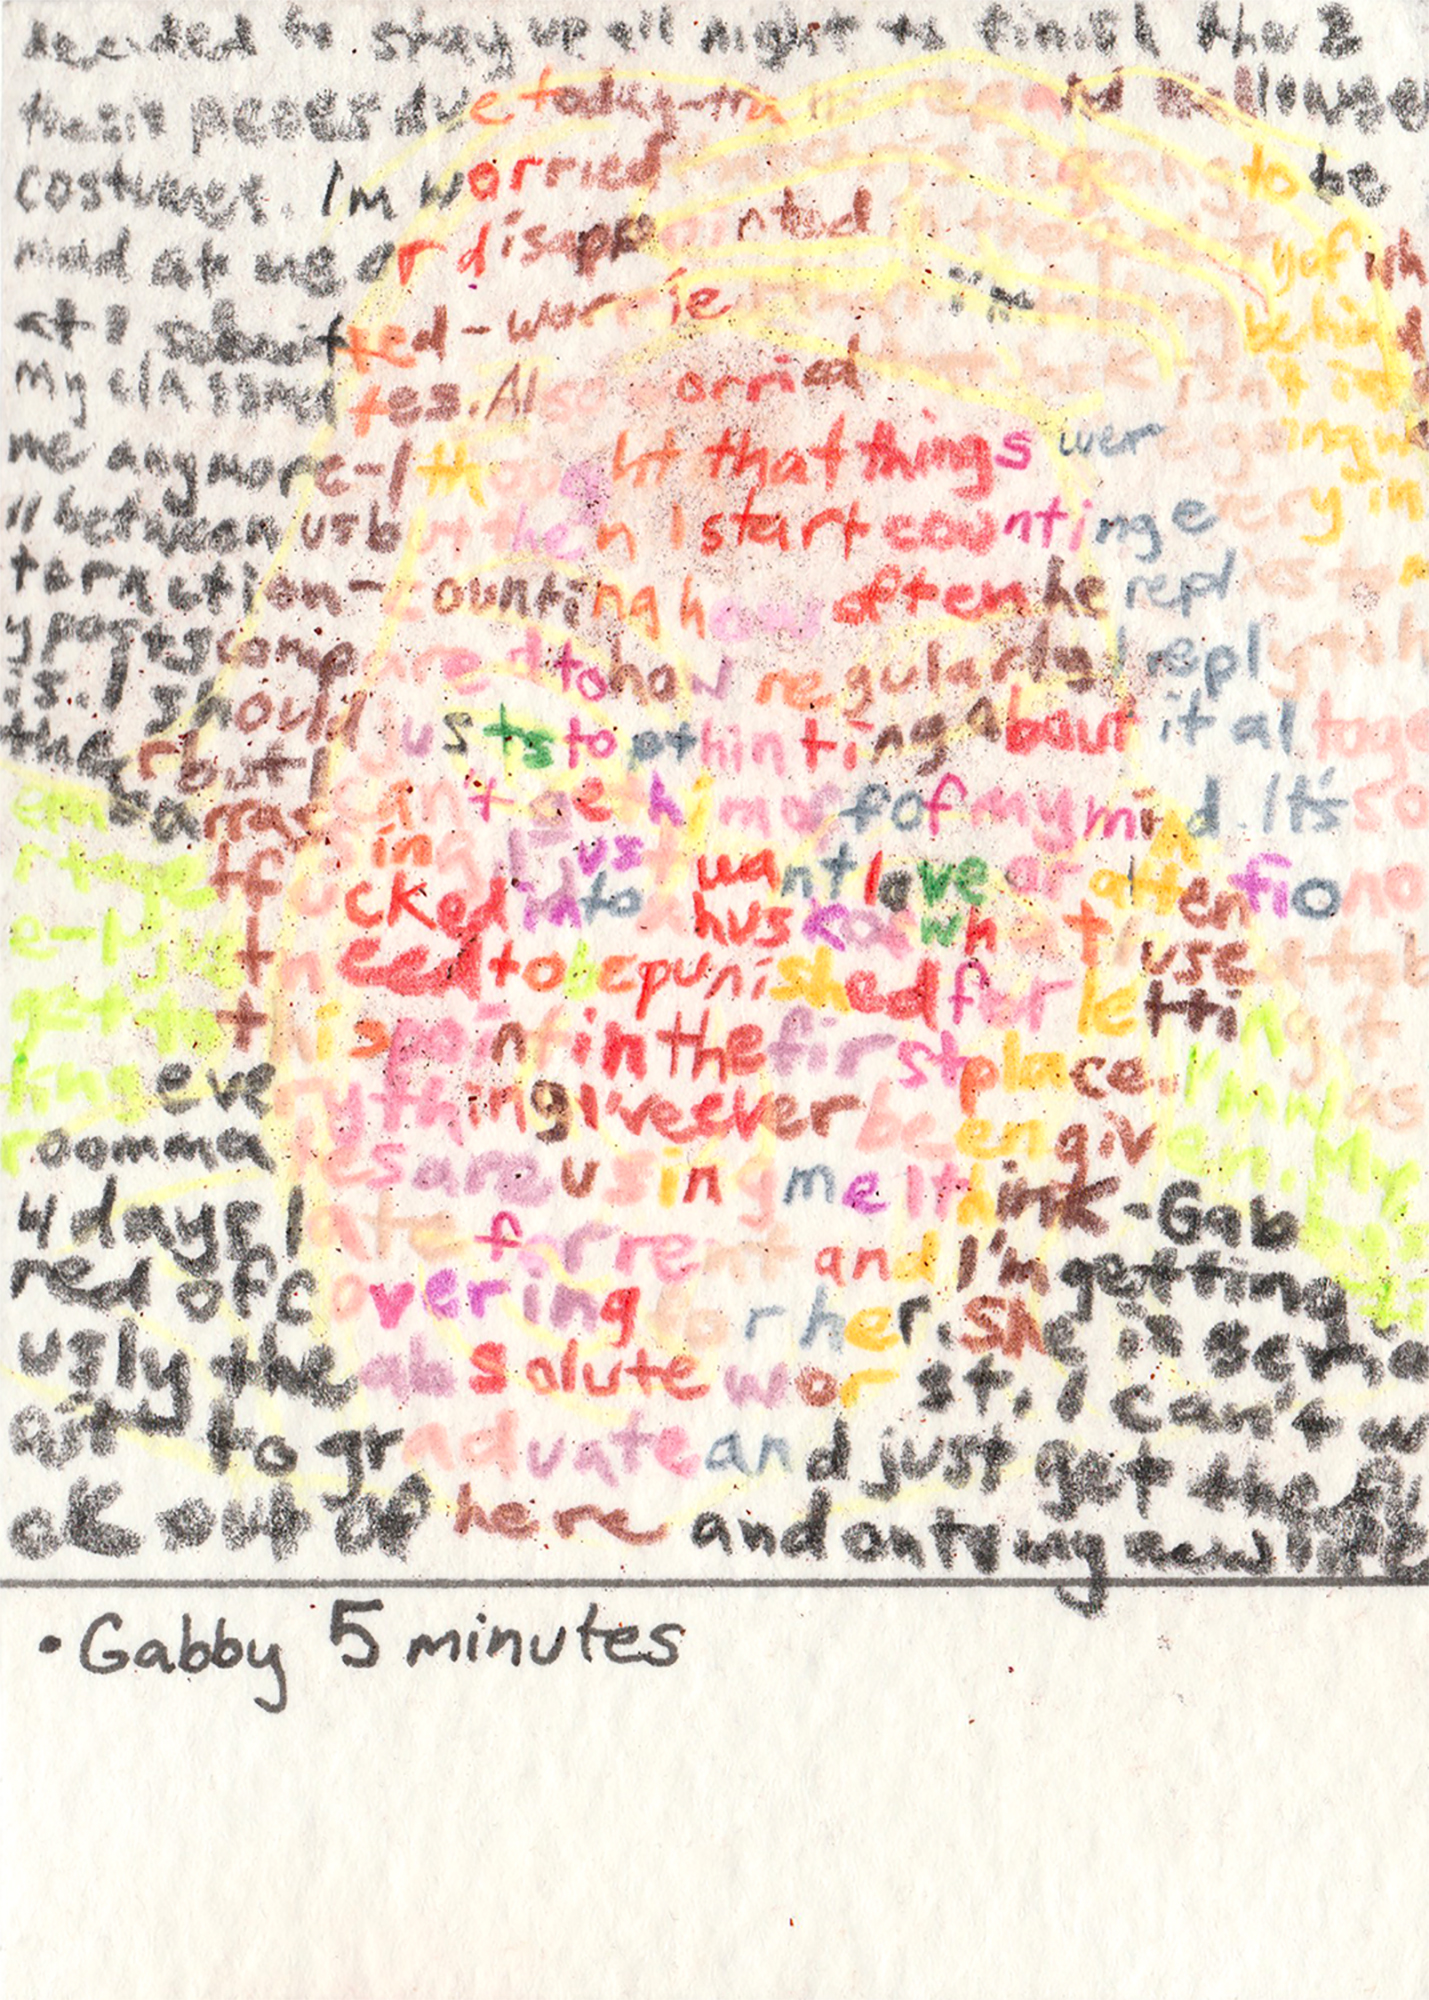 decided to stay up all night to finish the 2
thesis papers due today-tra
costumes. I'm worried going to be
mad at me or disappointed
at I submitted-worrie behind
my classmates. Also worried isn't
me anymore-I thought that things were going we
ll between us but then I start counting every in
teraction-counting how often he replies to m
y posts compared to how regularly I reply to h
is. I should just stop thinking about it altoge
ther but I can't get him off of my mind. It's so
embarrassing I just want love or attention
fucked into a
need to be punished for letting it
get to this point in the first place. I'm
everything I've ever been given. My
roommates are using me I think-Gab
4 days late for rent and I'm getting
red of covering for her. She is serio
usly the absolute worst. I can't w
ait to graduate and just get the fu
ck out of here and onto my new life
• Gabby 5 minutes